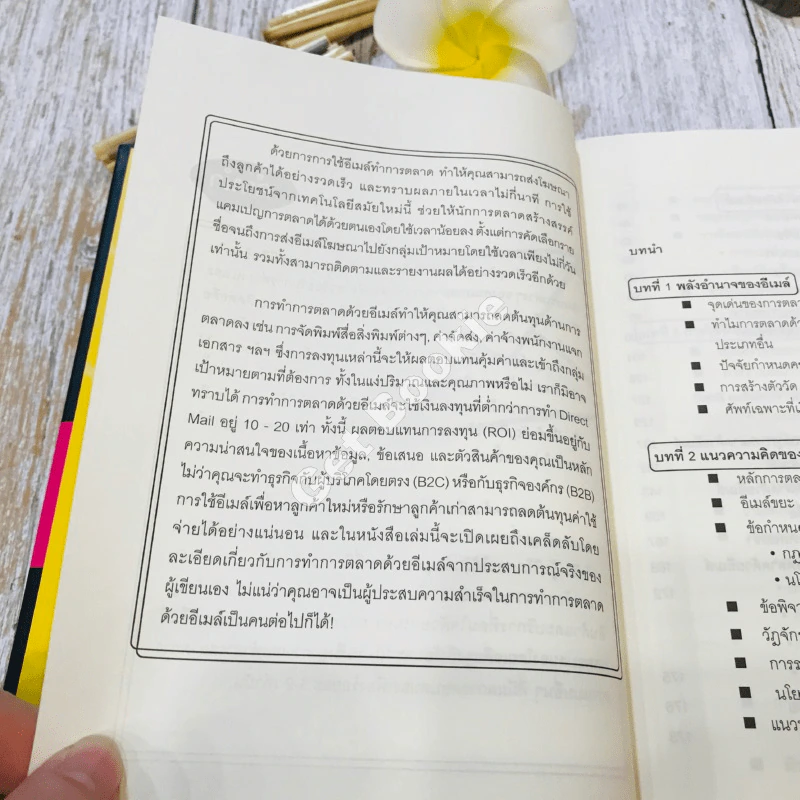 ด้วยการการใช้อีเมล์ทำการตลาด ทำให้คุณสามารถส่งโฆษณา
ถึงลูกค้าได้อย่างรวดเร็ว และทราบผลภายในเวลาไม่กี่นาที การใช้
ประโยชน์จากเทคโนโลยีสมัยใหม่นี้ ช่วยให้นักการตลาดสร้างสรรค์
แคมเปญการตลาดได้ด้วยตนเองโดยใช้เวลาน้อยลง ตั้งแต่การคัดเลือกราย
ชื่อจนถึงการส่งอีเมล์โฆษณาไปยังกลุ่มเป้าหมายโดยใช้เวลาเพียงไม่กี่วัน
เท่านั้น รวมทั้งสามารถติดตามและรายงานผลได้อย่างรวดเร็วอีกด้วย
การทำการตลาดด้วยอีเมล์ทำให้คุณสามารถลดต้นทุนด้านการ
ตลาดลง เช่น การจัดพิมพ์สื่อสิ่งพิมพ์ต่างๆ, ค่าจัดส่ง, ค่าจ้างพนักงานแจก
เอกสาร ฯลฯ ซึ่งการลงทุนเหล่านี้จะให้ผลตอบแทนคุ้มค่าและเข้าถึงกลุ่ม
เป้าหมายตามที่ต้องการ ทั้งในแง่ปริมาณและคุณภาพหรือไม่ เราก็มิอาจ
ทราบได้ การทำการตลาดด้วยอีเมล์จะใช้เงินลงทุนที่ต่ำกว่าการทำ Direct
Mail อยู่ 10 - 20 เท่า ทั้งนี้ ผลตอบแทนการลงทุน (ROI) ย่อมขึ้นอยู่กับ
ความน่าสนใจของเนื้อหาข้อมูล, ข้อเสนอ และตัวสินค้าของคุณเป็นหลัก
ไม่ว่าคุณจะทำธุรกิจกับผู้บริโภคโดยตรง (B2C) หรือกับธุรกิจองค์กร (B2B)
การใช้อีเมล์เพื่อหาลูกค้าใหม่หรือรักษาลูกค้าเก่าสามารถลดต้นทุนค่าใช้
จ่ายได้อย่างแน่นอน และในหนังสือเล่มนี้จะเปิดเผยถึงเคล็ดลับโดย
ละเอียดเกี่ยวกับการทำการตลาดด้วยอีเมล์จากประสบการณ์จริงของ
ผู้เขียนเอง ไม่แน่ว่าคุณอาจเป็นผู้ประสบความสำเร็จในการทำการตลาด
ด้วยอีเมล์เป็นคนต่อไปก็ได้!
Get Bookie
บทนำ
บทที่ 1 พลังอำนาจของอีเมล์
■ จุดเด่นของการตลา
■ ทำไมการตลาดด้ว
ประเภทอื่น
■ ปัจจัยกำหนดคว
■ การสร้างตัววัด
■ ศัพท์เฉพาะที่เ
บทที่ 2 แนวความคิดของ
■ หลักการตล
■ อีเมล์ขยะ
■ ข้อกำหน
• กฎ
• นโ
■ ข้อพิจา
■ วัฏจักร
■ การร
■ นโย
■ แนวท